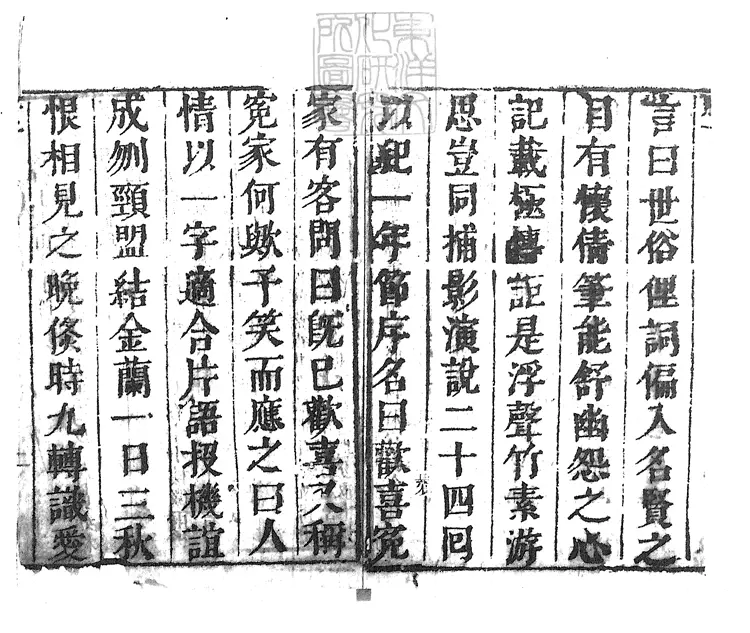 東洋
化研
所圖
曰世俗俚詞偏入名賢之
目有懷倩筆能舒幽怨之心
記載極博詎是浮聲竹素游
思豈同捕影演說二十四回
以紀一年節序名曰歡喜冤
家有客問曰既已歡喜又稱
冤家何歟予笑而應之曰人
情以一字適合片語投機誼
成刎頸盟結金蘭一日三秋
恨相見之晚倏時九轉識愛